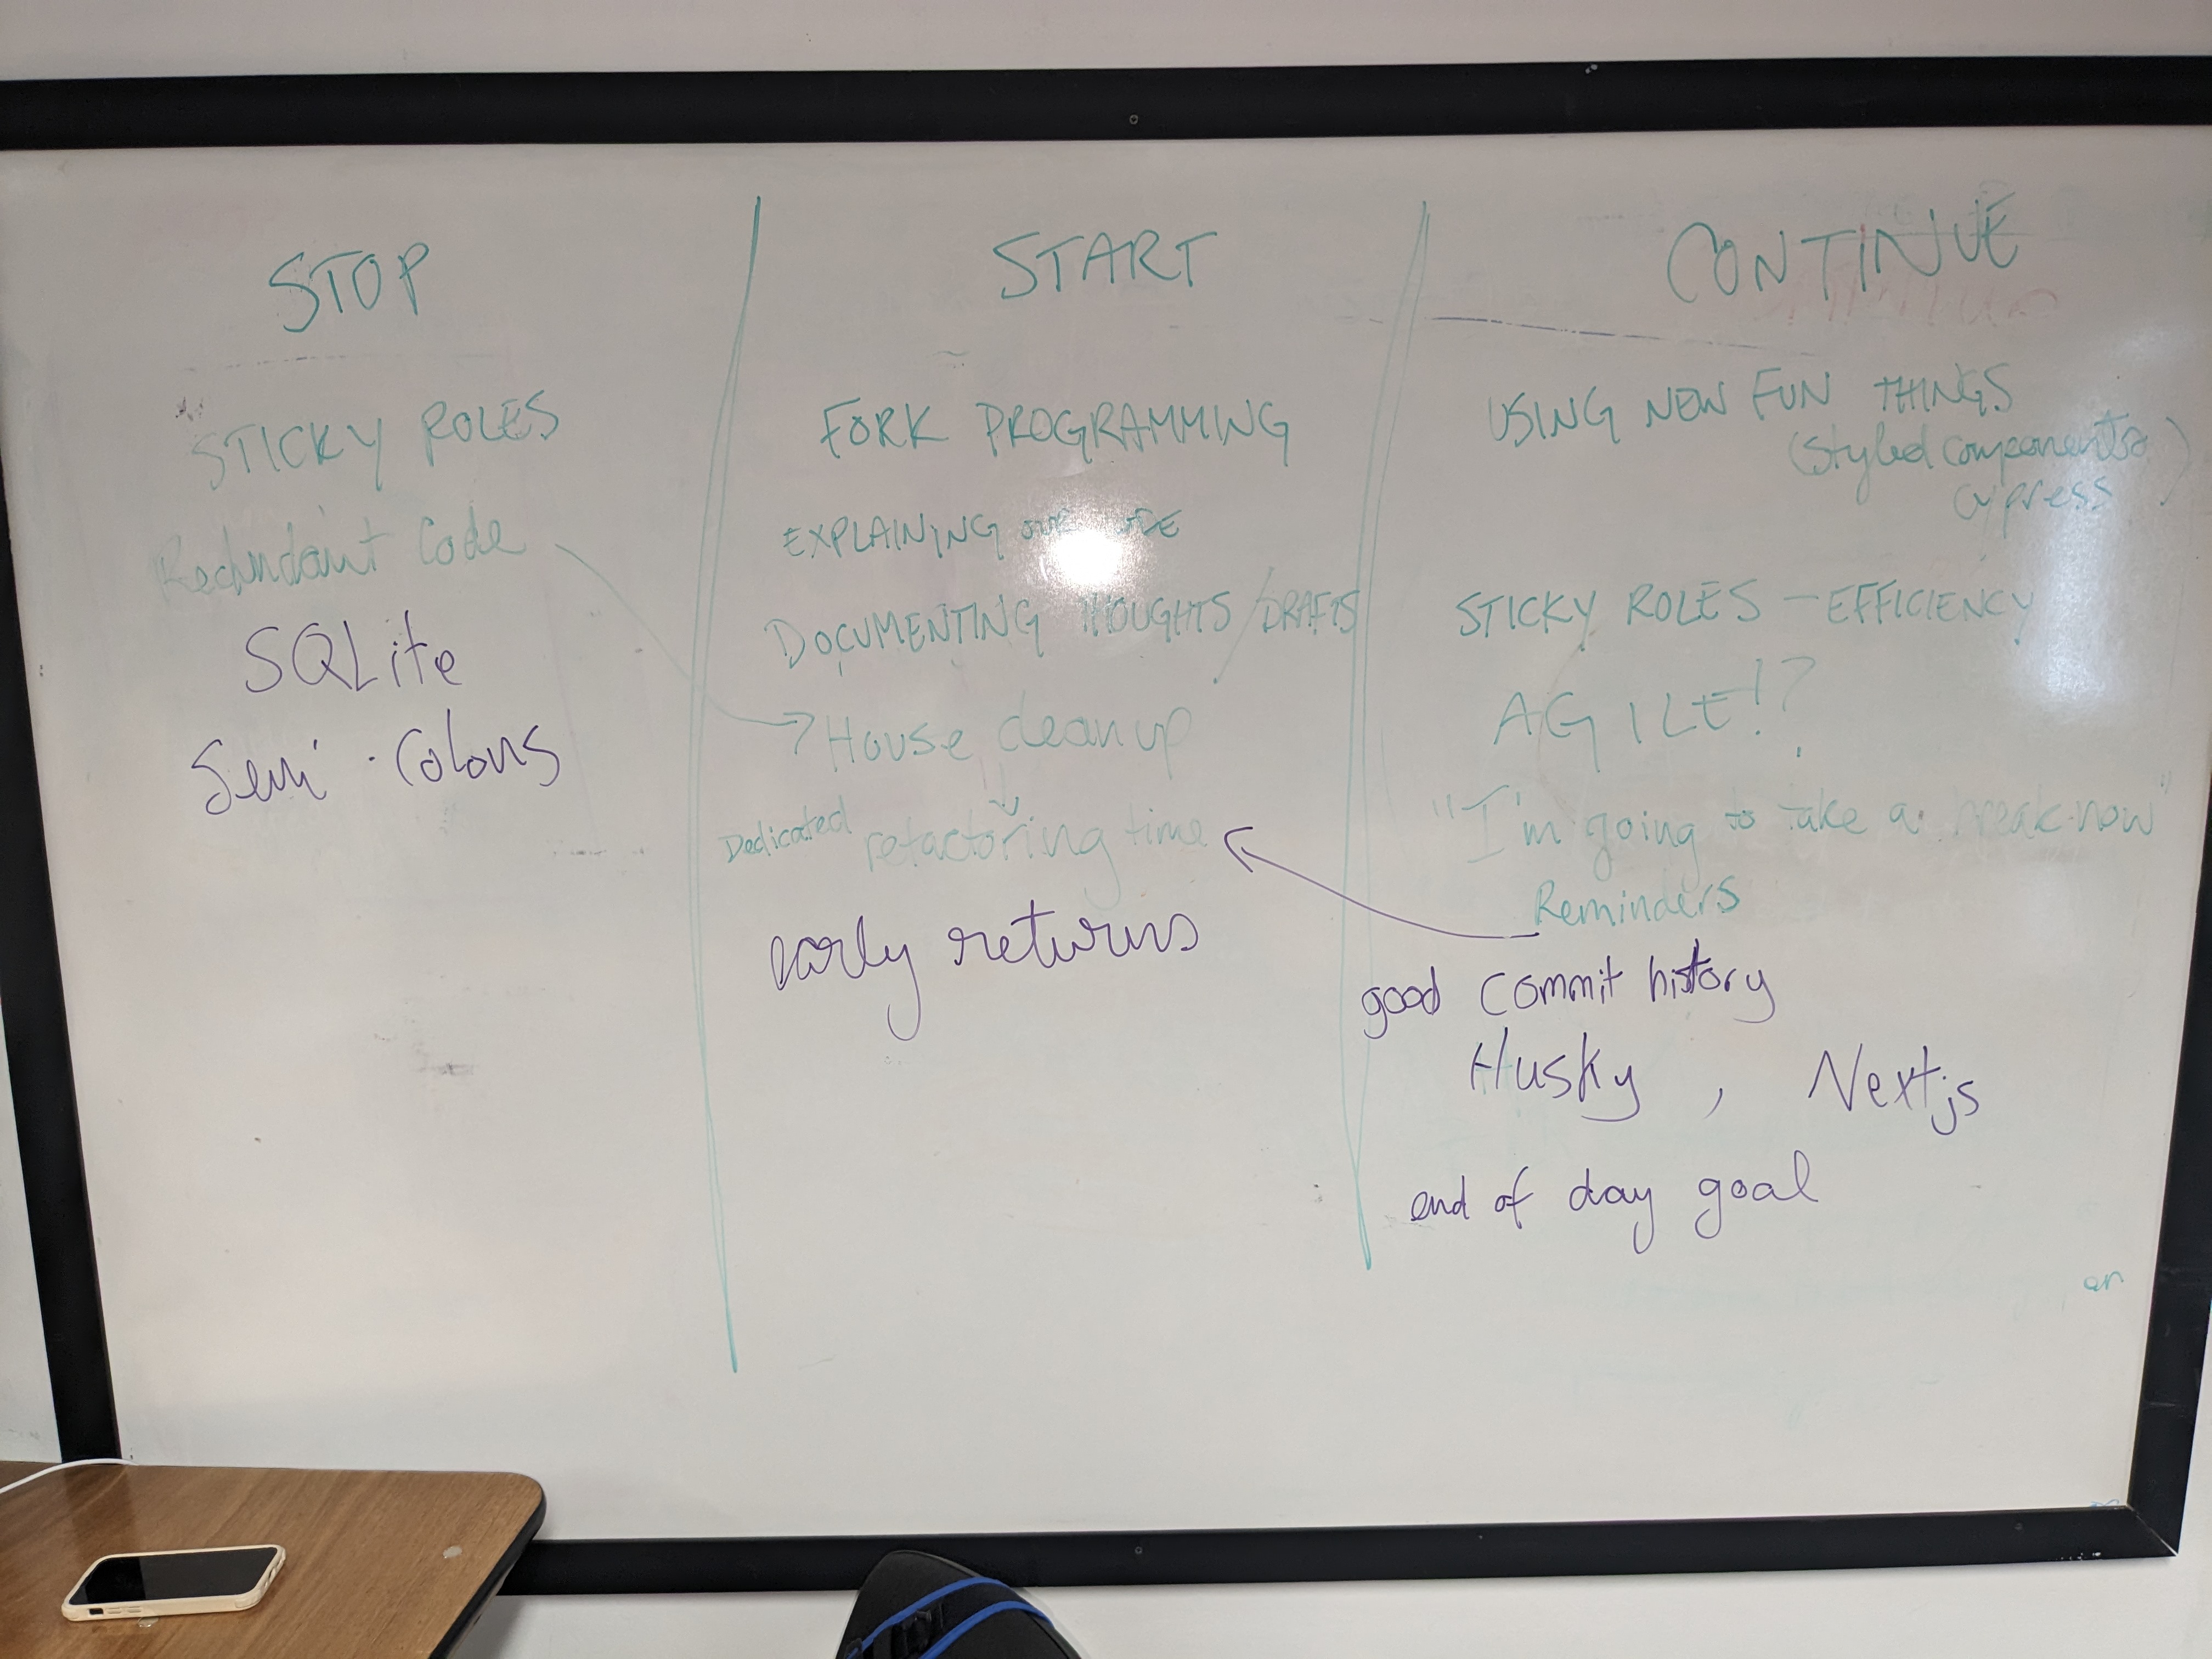 STOP
STICKY ROLES
Redundant Code
SQLite
Semi-Colons
START
FORK PROGRAMMING
EXPLAINING OUR CODE
DOCUMENTING THOUGHTS / DRAFTS
House cleanup
Dedicated refactoring time
early returns
CONTINUE
USING NEW FUN THINGS
(Styled components
cypress)
STICKY ROLES - EFFICIENCY
AGILE!?
"I'm going to take a break now"
Reminders
good commit history
Husky, Nextjs
end of day goal